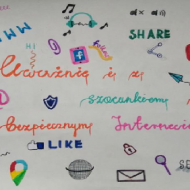 WWW
HI
Hello
SHARE
Uważnie i z
szacunkiem
bezpiecznym
Internecie
LIKE